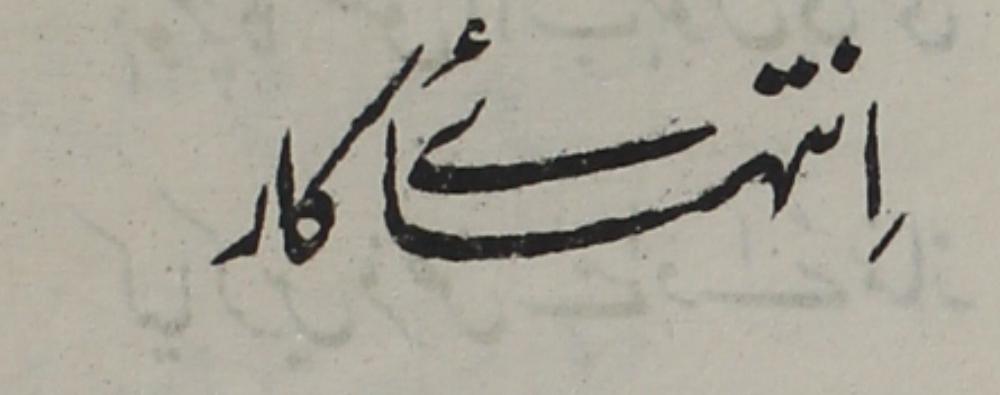 اِنتہائے کار